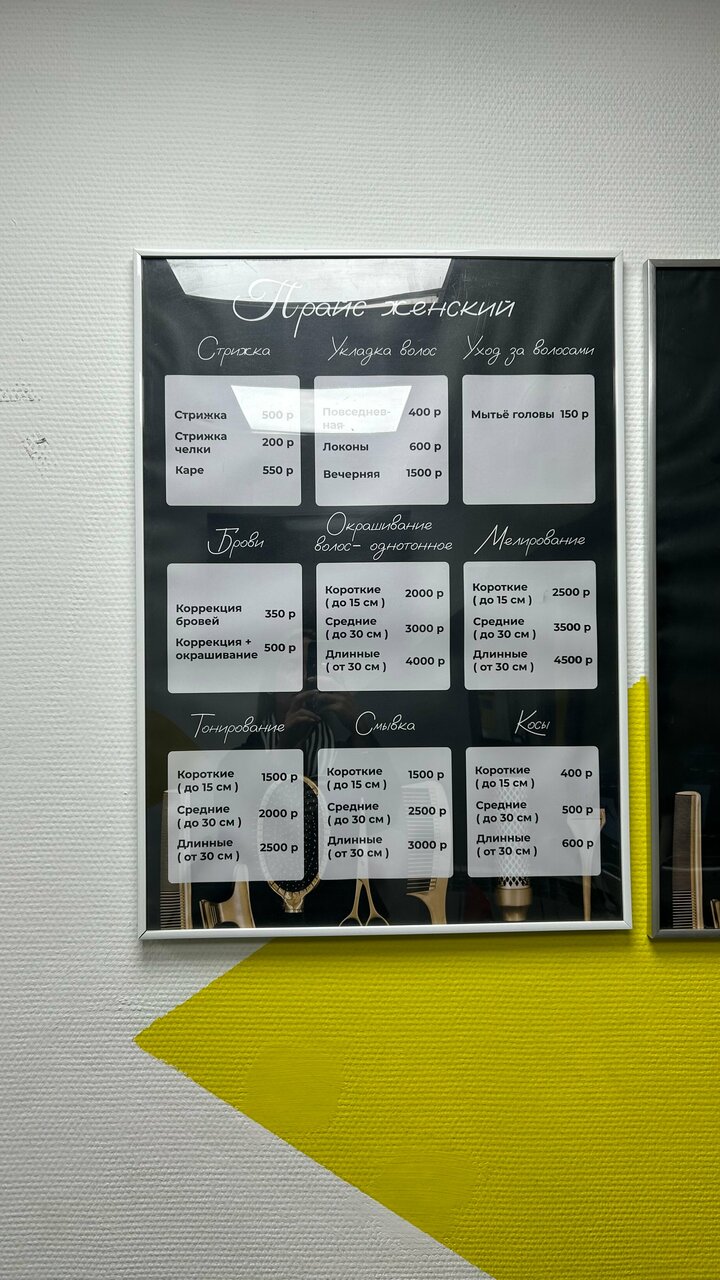 Прайс женский
Стрижка
Стрижка 500 р
Стрижка
челки 200 р
Каре 550 р
Укладка волос
Повседнев-
ная 400 р
Локоны 600 р
Вечерняя 1500 р
Уход за волосами
Мытьё головы 150 р
Брови
Коррекция
бровей 350 р
Коррекция +
окрашивание 500 р
Окрашивание
волос- однотонное
Короткие
( до 15 см ) 2000 р
Средние
( до 30 см ) 3000 р
Длинные
( от 30 см ) 4000 р
Мелирование
Короткие
( до 15 см ) 2500 р
Средние
( до 30 см ) 3500 р
Длинные
( от 30 см ) 4500 р
Тонирование
Короткие
( до 15 см ) 1500 р
Средние
( до 30 см ) 2000 р
Длинные
( от 30 см ) 2500 р
Смывка
Короткие
( до 15 см ) 1500 р
Средние
( до 30 см ) 2500 р
Длинные
( от 30 см ) 3000 р
Косы
Короткие
( до 15 см ) 400 р
Средние
( до 30 см ) 500 р
Длинные
( от 30 см ) 600 р